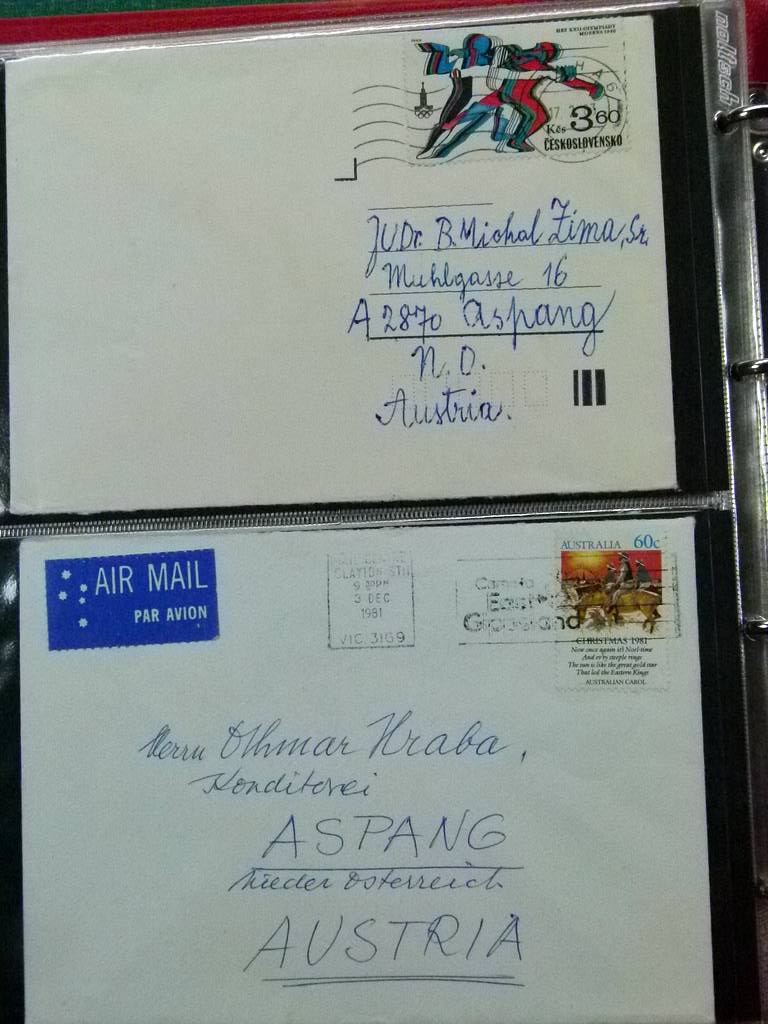 HRY XXII. OLYMPIADY
MOSKVA 1980
Kčs 3 60
ČESKOSLOVENSKO
JUDr. B. Michal Zima, Sr.
Muhlgasse 16
A 2870 Aspang
N. O.
Austria.
AIR MAIL
PAR AVION
CLAYTON STH
3 DEC
1981
VIC. 3169
East
AUSTRALIA 60c
CHRISTMAS 1981
Now once again it's Noel-time
And ev'ry steeple rings
The sun is like the great gold star
That led the Eastern Kings
AUSTRALIAN CAROL
Herrn Othmar Hraba,
Konditorei
ASPANG
Nieder Österreich
AUSTRIA